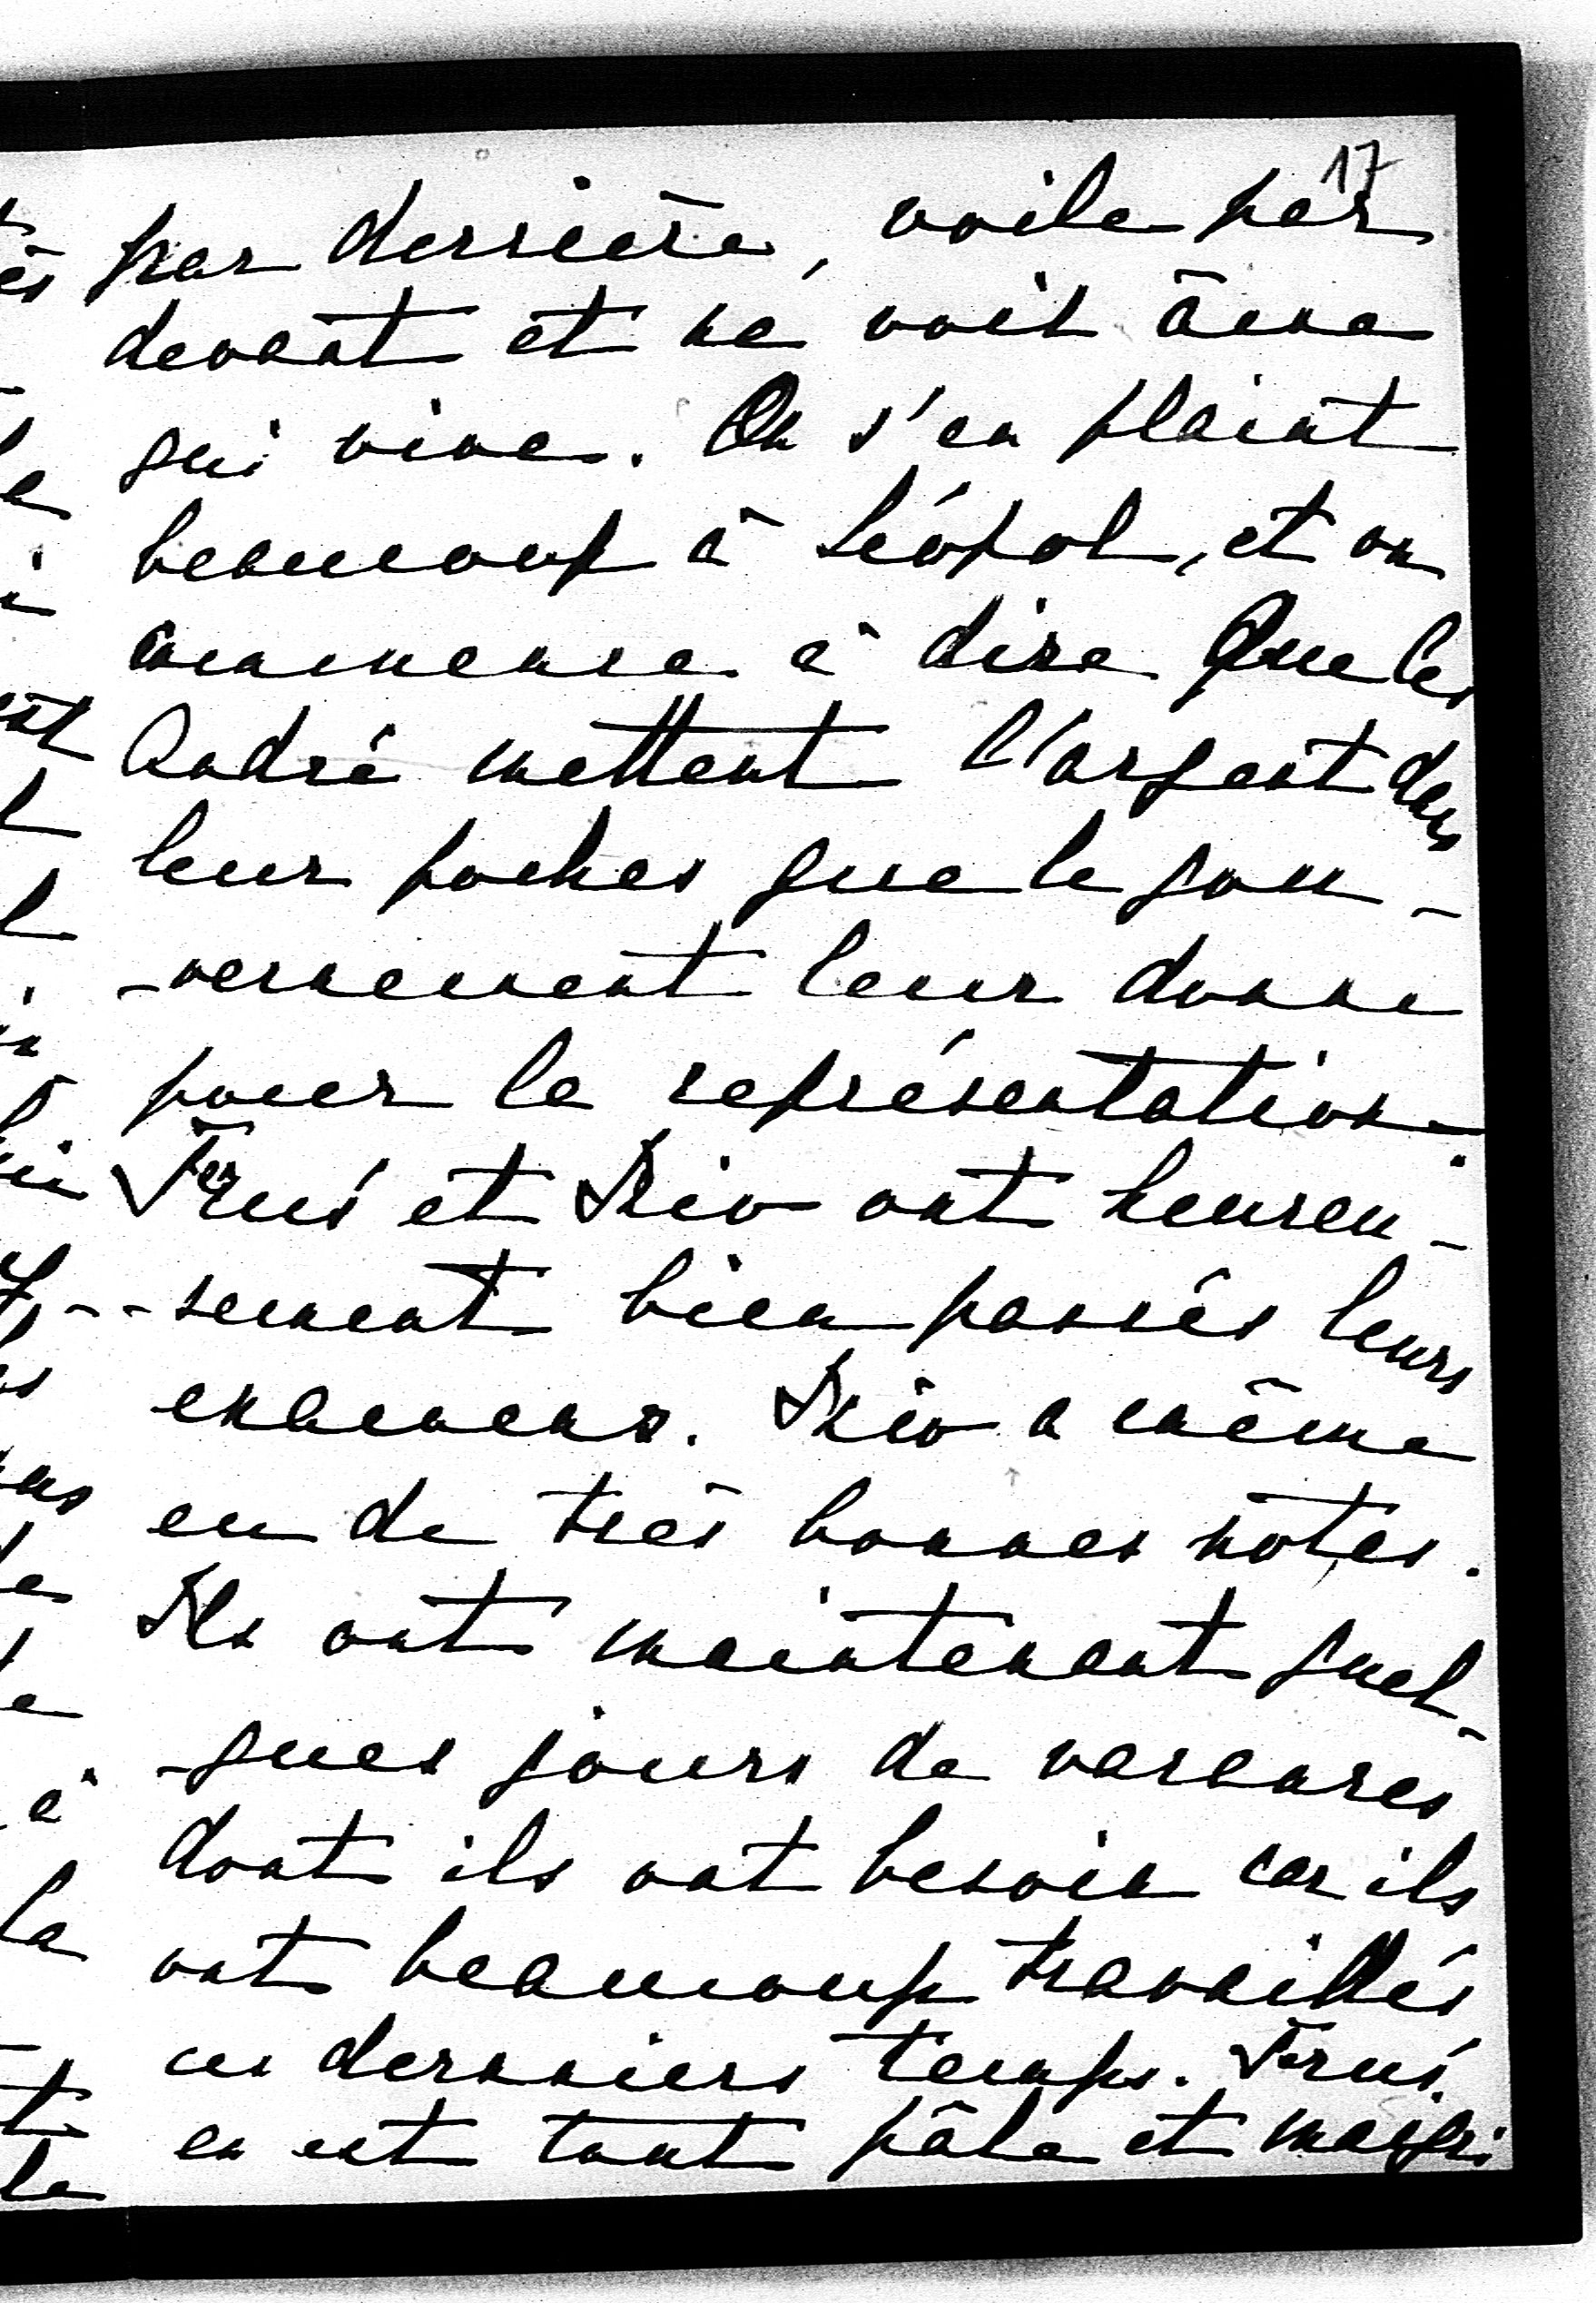 17
par derrière, voile par
devant et ne voit âme
qui vive. On s'en plaint
beaucoup à Léopol, et on
commence à dire que les
André mettent l'argent dans
leur poches que le gou-
-vernement leur donne
pour la représentation.
Frus et ont heureu-
-sement bien passés leurs
examens. a même
eu de très bonnes notes.
Ils ont maintenant quel-
-ques jours de vacances
dont ils ont besoin car ils
ont beaucoup travaillés
ces derniers temps. Frus
en est tout pâle et maigri